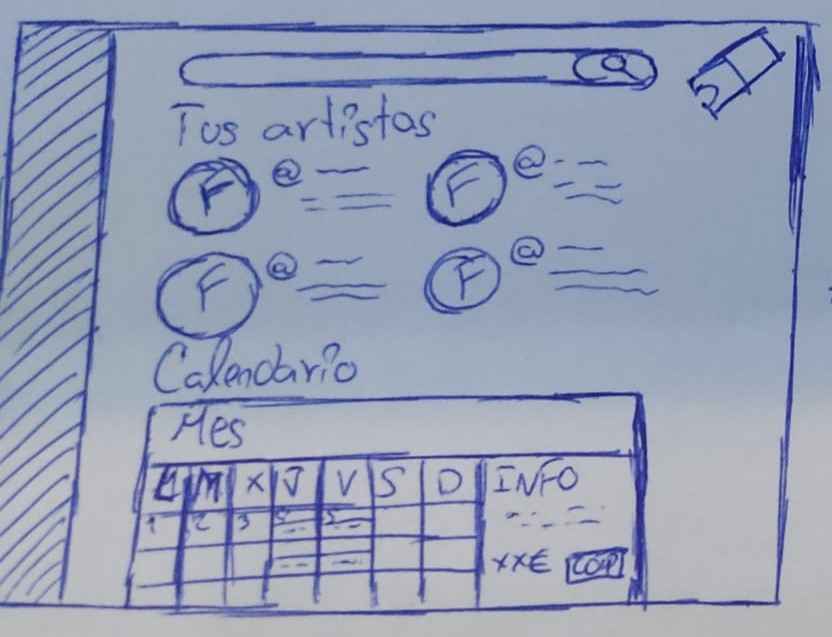 Tus artistas
F @ F @
F @ F @
Calendario
Mes
L M X J V S D INFO
1 2 3
XX€